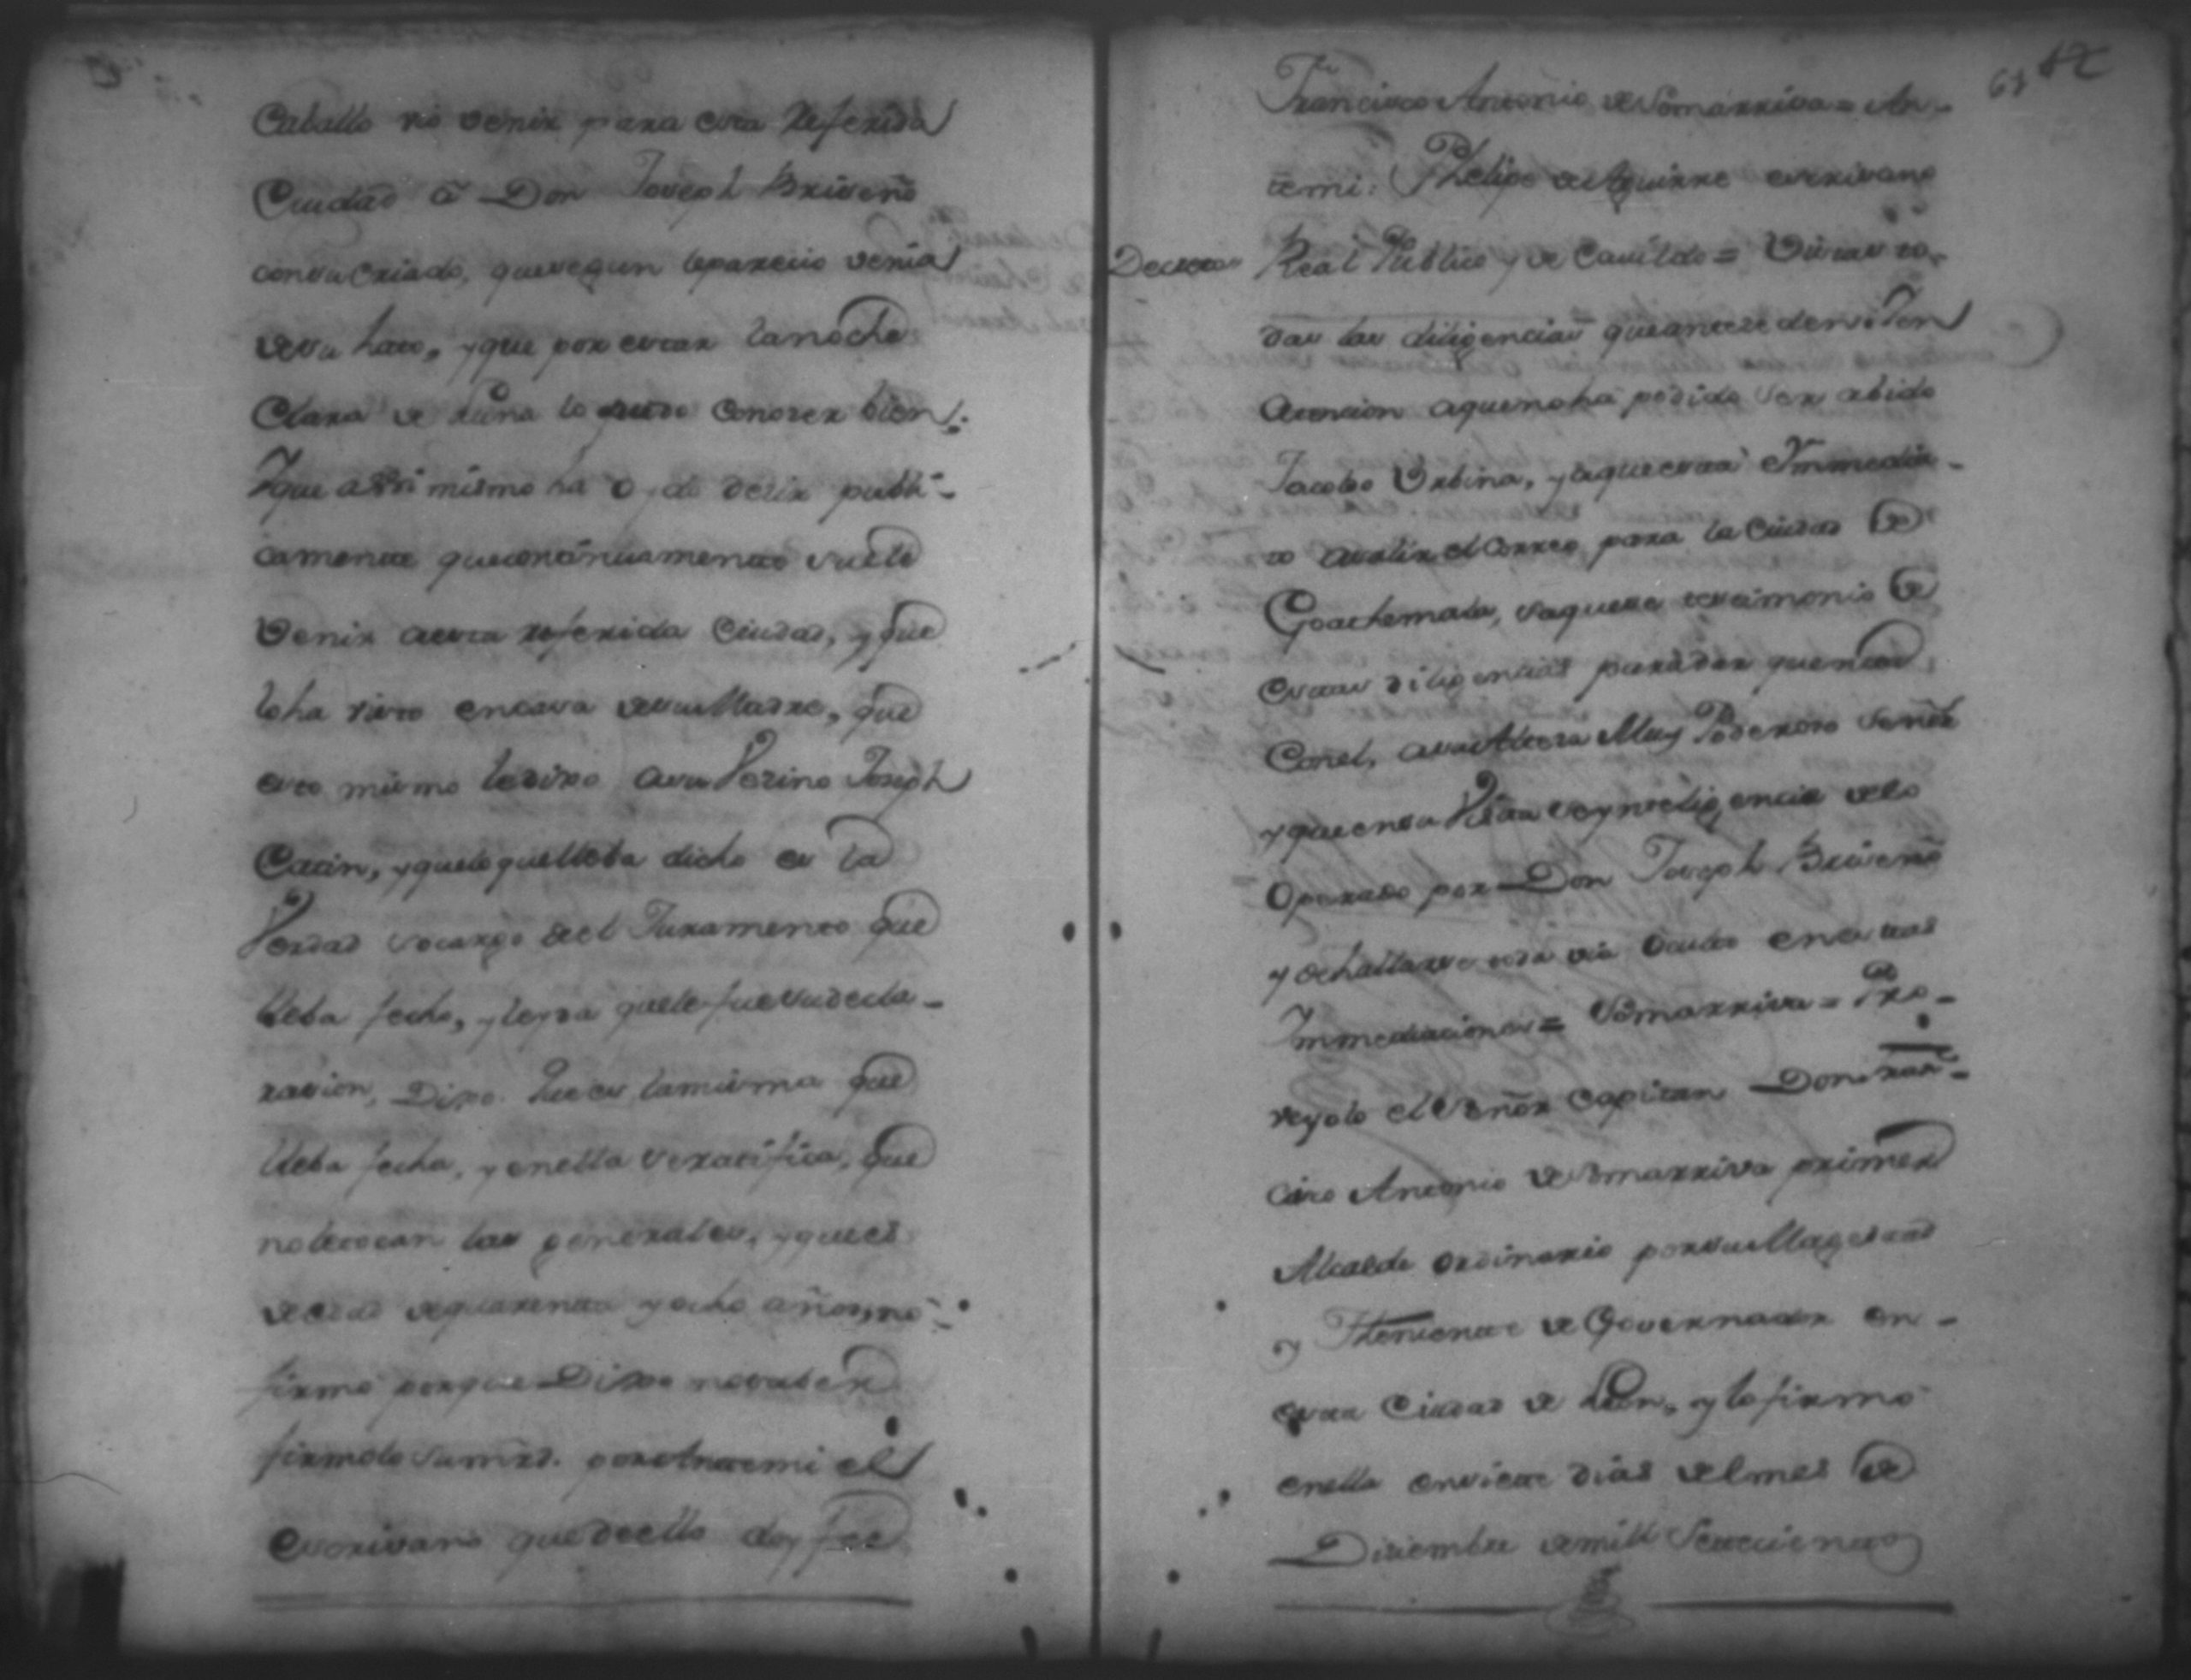 Caballo vió venir para esta referida
Ciudad á Don Joseph Briseño
con su criado, que segun le parecio venia
de su hato, y que por estar la noche
Clara de Luna lo pudo conoser bien.
Y que assi mismo ha oydo desir publi-
camente que continuamente suele
Venir a esta referida Ciudad, y que
lo ha visto en casa de su Madre, que
esto mismo le dixo a su Vezino Joseph
y que lo que lleba dicho es la
Verdad so cargo del Juramento que
lleba fecho, y leyda que le fue su decla-
rasion, Dixo. Que es la misma que
lleba fecha, y en ella se ratifica, que
no le tocan las generales, y que es
de edad de quarenta y ocho años, no
firmó porque Dixo no saber
firmolo su mrd. por Ante mi el
escrivano que de ello doy fee
61
Francisco Antonio de Somarriva = An-
te mi: Phelipe de Aguirre escrivano
Decreto Real Publico y de Cavildo = Vistas to-
das las diligencias que anteceden: Ten
Atencion a que no ha podido ser abido
Jacobo Urbina, y a que está Ymmedia-
to a salir el Correo para la Ciudad de
Goathemala, saquese testimonio de
estas diligencias para dar quenta
Con el, a su Altesa Muy Poderoso Señor
y que en su Vista se ynteligencie de lo
Operado por Don Joseph Briseño
y de hallarse toda via Oculto en estas
Ymmediaciones = Somarriva = Pro-
veyolo el Señor Capitan Don Fran-
cisco Antonio de Somarriva primer
Alcalde ordinario por su Magestad
y Theniente de Governador en
esta Ciudad de Leon, y lo firmó
en ella en siete dias del mes de
Disiembre de mill Setecientos